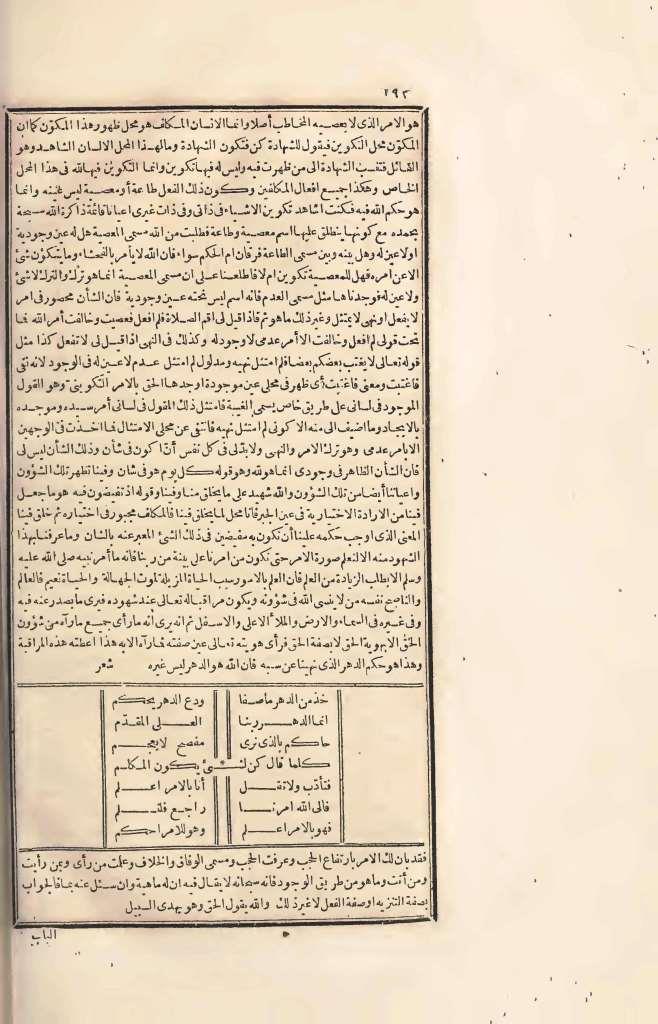 ٢٩٣
هو الامر الذى لا يعصيه المخاطب أصلا وانما الانسان المكلف هو محل ظهور هذا المكوّن كما ان
المكوّن محل التكوين فيقول للشهادة كن فتكون الشهادة وما لهذا المحل الا لسان الشاهد وهو
القائل فتنسب الشهادة الى من ظهرت فيه وليس له فيها تكوين وانما التكوين فيها لله فى هذا المحل
الخاص وهكذا جميع افعال المكلفين وكون ذلك الفعل طاعة أو معصية ليس عينه وانما
هو حكم الله فيه فكنت اشاهد تكوين الاشياء فى ذاتى وفى ذات غيرى اعيانا قائمة ذاكرة الله مسبحة
بحمده مع كونها ينطلق عليها اسم معصية وطاعة فطلبت من الله مسمى المعصية هل له عين وجودية
اولا عين له وهل بينه وبين مسمى الطاعة فرقان ام الحكم سواء فان الله لا يأمر بالفحشاء وما يتكوّن شئ
الا عن امره فهل للمعصية تكوين ام لا فاطلعنا على ان مسمى المعصية انما هو ترك والترك لا شئ
ولا عين له فوجدناها مثل مسمى العدم فانه اسم ليس تحته عين وجودية فان الشأن محصور فى امر
لا يفعل او نهى لا يمتثل وغير ذلك ما هو ثم فاذا قيل لى اقم الصلاة فلم افعل فعصيت وخالفت أمر الله فما
تحت قولى لم افعل وخالفت الا أمر عدمى لا وجود له وكذلك فى النهى اذا قيل لى لا تفعل كذا مثل
قوله تعالى لا يغتب بعضكم بعضا فلم امتثل نهيه ومدلول لم امتثل عدم لا عين له فى الوجود لانه نفى
فاغتبت ومعنى فاغتبت أى ظهر فى محلى عين موجودة اوجدها الحق بالامر التكوينى وهو القول
الموجود فى لسانى على طريق خاص يسمى الغيبة فامتثل ذلك المقول فى لسانى أمر سيده وموجده
بالايجاد وما اضيف الى منه الا كونى لم امتثل نهيه فانتفى عن محلى الامتثال فما اخذت فى الوجهين
الا بامر عدمى وهو ترك الامر والنهى ولا بدّ لى فى كل نفس أن اكون فى شأن وذلك الشأن ليس لى
فان الشأن الظاهر فى وجودى انما هو لله وهو قوله كل يوم هو فى شان وفينا تظهر تلك الشؤون
واعياننا أيضا من تلك الشؤون والله شهيد على ما يخلق منا وفينا وقوله اذ تفيضون فيه هو ما جعل
فينا من الارادة الاختيارية فى عين الجبر فانا محل لما يخلق فينا فالمكلف مجبور فى اختياره ثم خلق فينا
المعنى الذى اوجب حكمه علينا أن نكون به مفيضين فى ذلك الشئ المعبر عنه بالشان وما عرفنا بهذا
الشهود منه الا لنعلم صورة الامر حتى نكون من امرنا على بينة من ربنا فانه ما أمر نبيه صلى الله عليه
وسلم الا بطلب الزيادة من العلم فان العلم بالامور سبب الحياة المزيلة لموت الجهالة والحياة نعيم فالعالم
والناصح نفسه من لا ينسى الله فى شؤونه ويكون مراقبا له تعالى عند شهوده فيرى ما يصدر عنه فيه
وفى غيره فى السماء والارض والملأ الاعلى والاسفل ثم انه يرى أنه ما رأى جميع ما رآه من شؤون
الحق الا بهوية الحق لا بصفة الحق فرأى هويته تعالى عين صفته فما رآه الا به هذا اعطته هذه المراقبة
وهذا هو حكم الدهر الذى نهينا عن سبه فان الله هو الدهر ليس غيره شعر
خذ من الدهر ما صفا ودع الدهر يحكم
انما الدهر ربنا العلى المقدّم
حاكم بالذى نرى مفصح لا يجمجم
كلما قال كن لشئ يكون المكلم
فتأدّب ولا تقل أنا بالامر اعلم
فالى الله امرنا راجع فلتسلم
فهو بالامر اعلم وهو للامر احكم
فقد بان لك الامر بارتفاع الحجب وعرفت الحجب ومسمى الوفاق والخلاف وعلمت من رأى وبمن رأيت
ومن أنت وما هو من طريق الوجود فانه سبحانه لا يقال فيه ان له ماهية وان سئل عنه بما فالجواب
بصفة التنزيه او صفة الفعل لا غير ذلك والله يقول الحق وهو يهدى السبيل
الباب